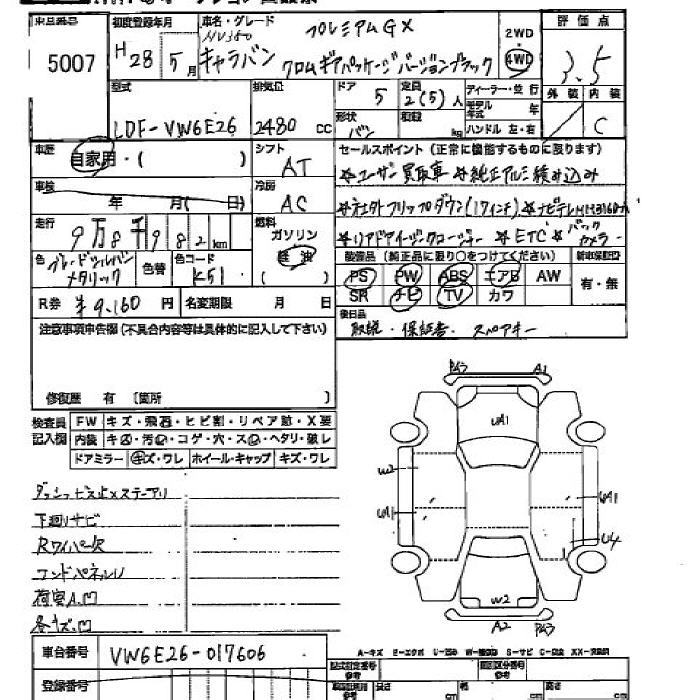 出品番号 5007
初度登録年月 H28年5月
車名・グレード NV350 キャラバン プレミアムGX
クロムギアパッケージバージョンブラック
2WD
4WD
評価点 3.5
外装 内装 C
型式 LDF-VW6E26
排気量 2480 cc
ドア 5
定員 2(5)人
形状 バン
積載 kg
ディーラー・並行
モデル年式 年
ハンドル 左・右
車歴 自家用・( )
シフト AT
セールスポイント (正常に機能するものに限ります)
☆ユーザー買取車 ☆純正アルミ積み込み
車検 年 月( 日)
冷房 AC
走行 9万8千982km
燃料 ガソリン 軽油 ( )
☆ETC ☆バックカメラー
色 メタリック
色替
色コード K51
装備品 (純正品に限り○をつけてください)
新車保証書
PS PW ABS エアB AW
有・無
SR ナビ TV カワ
R券 ¥9,160円
名変期限 月 日
後日品
取説・保証書・スペアキー
注意事項申告欄(不具合内容等は具体的に記入して下さい)
修復歴 有 〔箇所 〕
検査員記入欄
FW キズ・飛石・ヒビ割・リペア跡・X要
内装 キズ・汚レ・コゲ・穴・スレ・ヘタリ・破レ
ドアミラー キズ・ワレ ホイール・キャップ キズ・ワレ
下廻りサビ
Rワイパー欠
荷室A.凹
各キズ.凹
P43 A1
UA1
W2
UA1
UA1
U4
W2
A2 P43
車台番号 VW6E26-017606
登録番号
長さ
幅
高さ